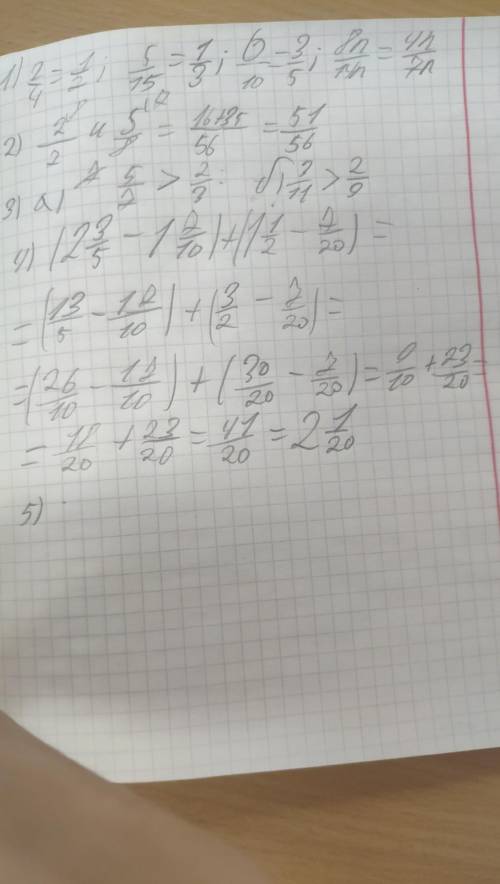 1) 2/4 = 1/2; 5/15 = 1/3; 6/10 = 3/5; 8n/14n = 4n/7n
2) 2/2 и 5/8 = 16+35/56 = 51/56
3) а) 5/7 > 2/3; б) 3/11 > 2/9
4) (2 3/5 - 1 7/10) + (1 1/2 - 7/20) =
= (13/5 - 17/10) + (3/2 - 7/20) =
= (26/10 - 17/10) + (30/20 - 7/20) = 9/10 + 23/20 =
= 18/20 + 23/20 = 41/20 = 2 1/20
5)